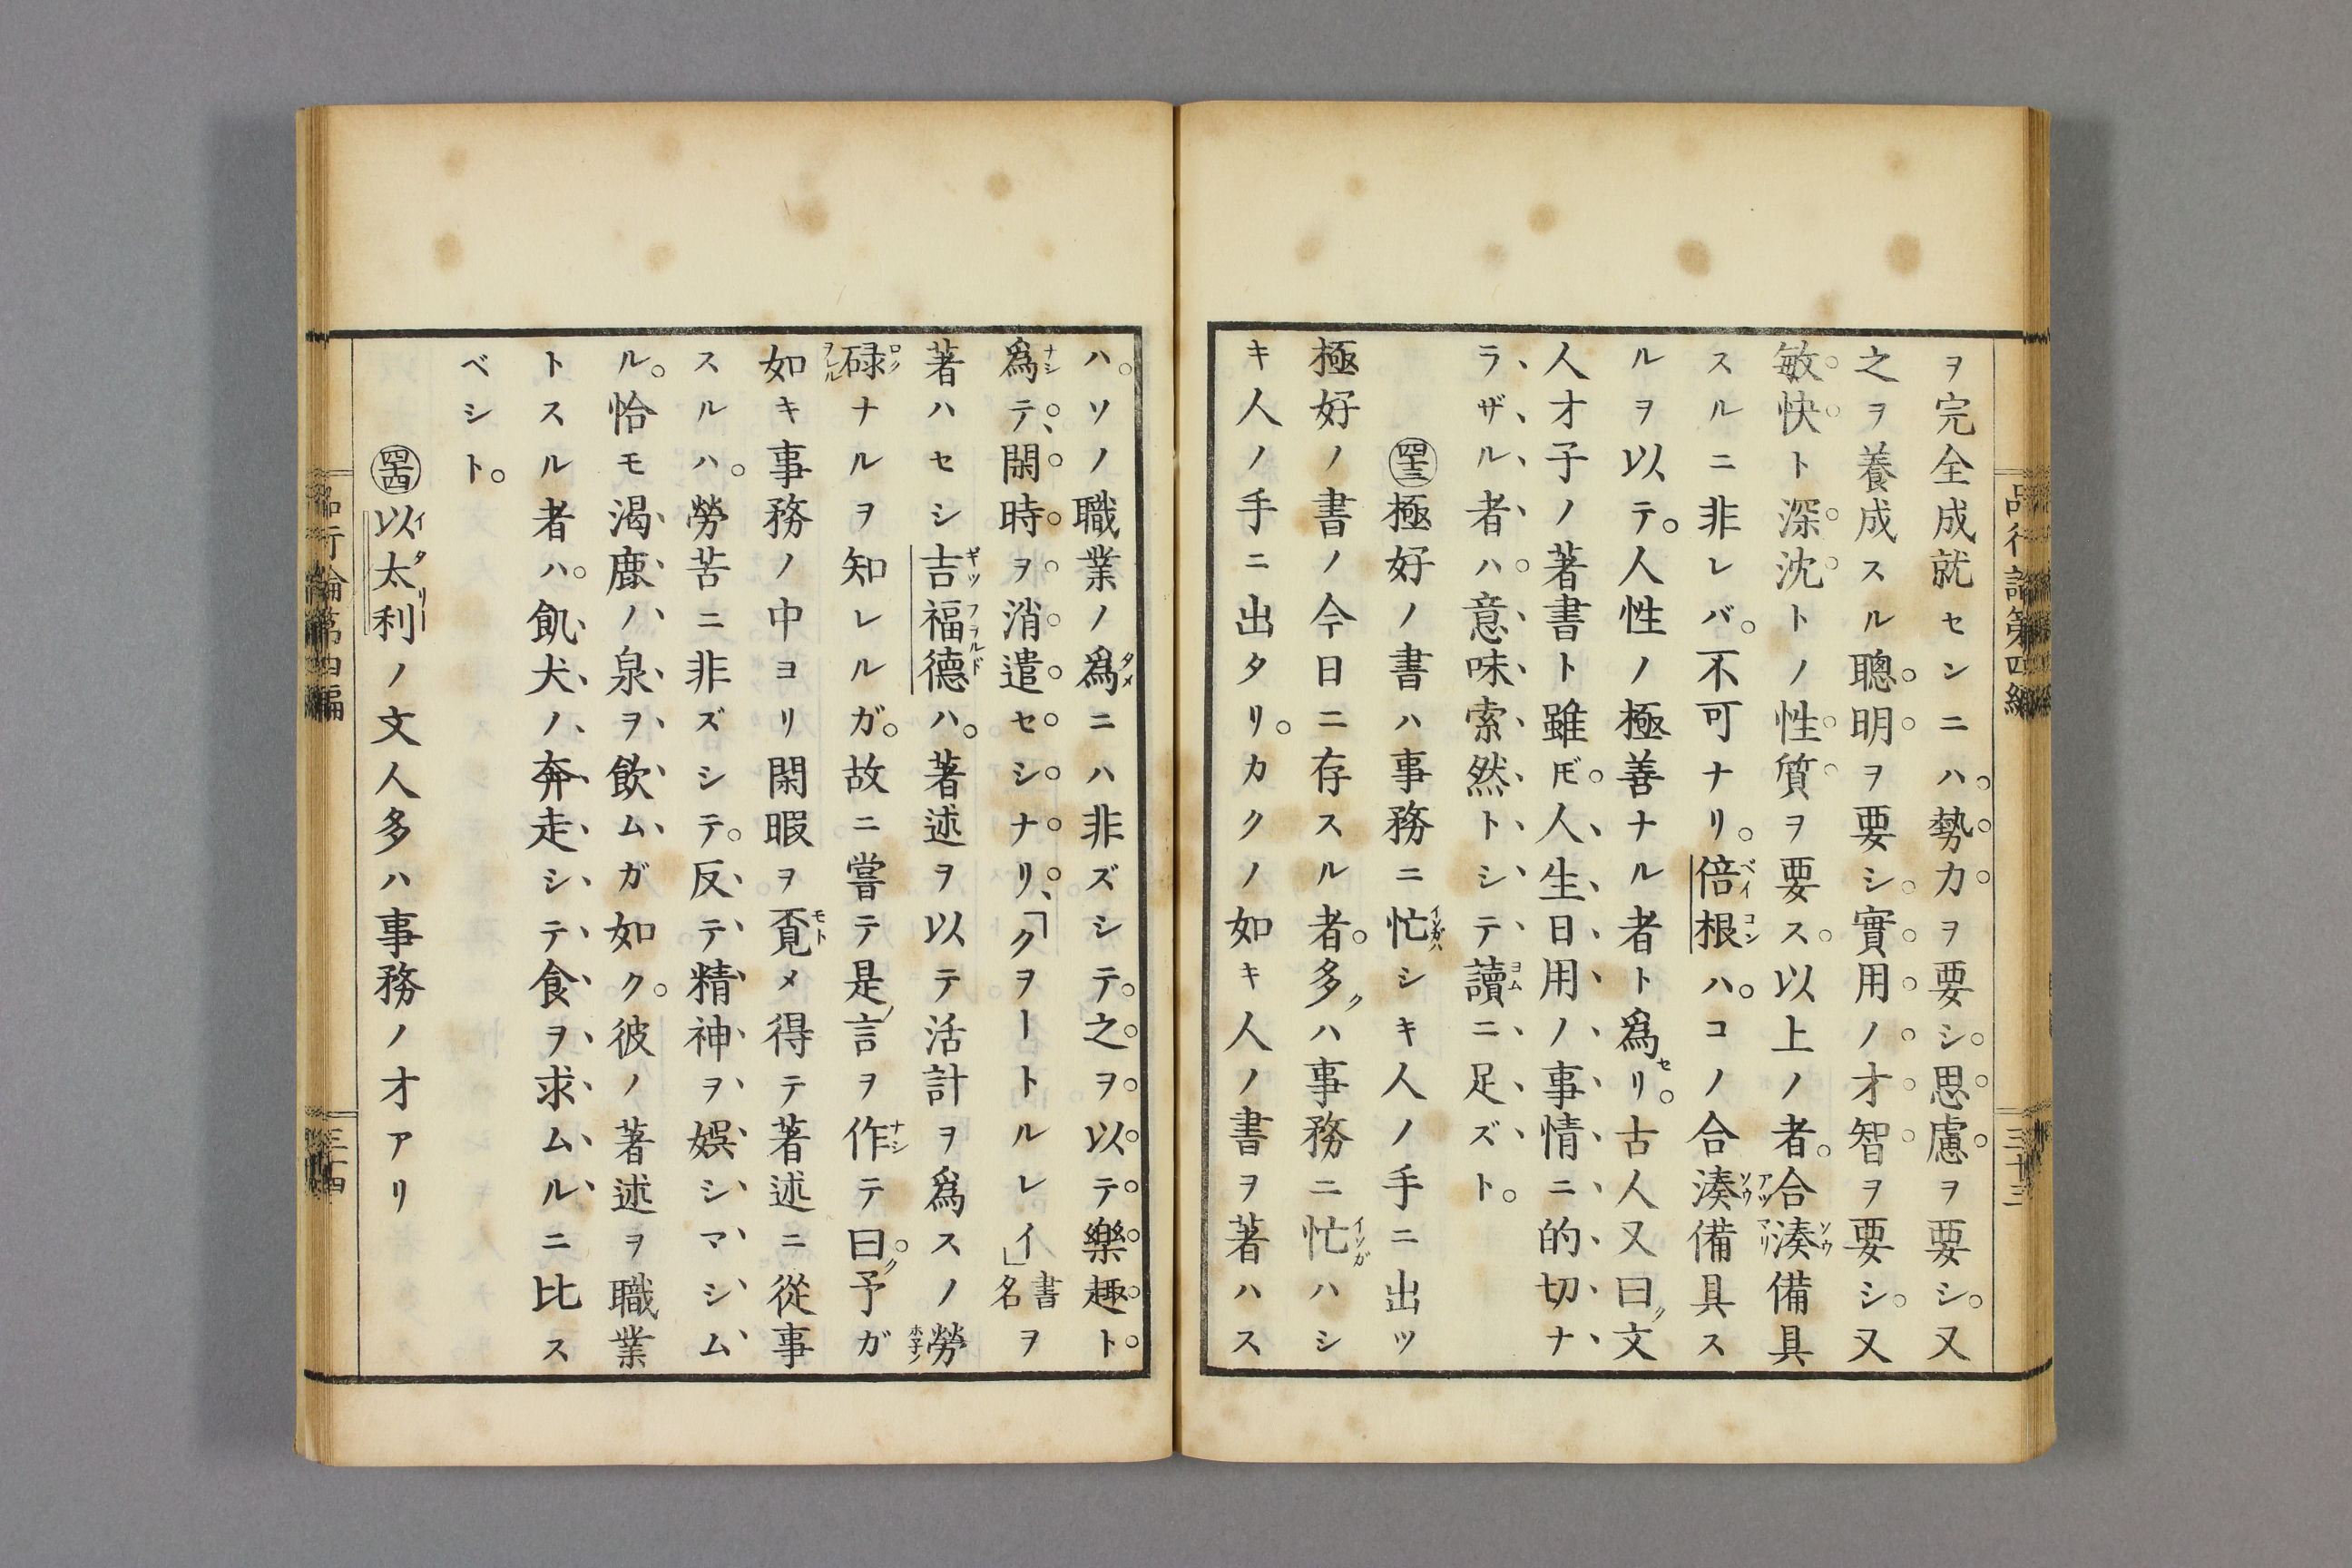 品行論第四編
三十三
ヲ完全成就センニハ。勢力ヲ要シ。思慮ヲ要シ。又
之ヲ養成スル聰明ヲ要シ。實用ノ才智ヲ要シ。又
敏快ト深沈トノ性質ヲ要ス。以上ノ者。合湊備具
スルニ非レバ。不可ナリ。倍根ハ。コノ合湊備具ス
ルヲ以テ。人性ノ極善ナル者ト爲セリ。古人又曰ク文
人才子ノ著書ト雖𪜈。人生日用ノ事情ニ的切ナ
ラザル者ハ。意味索然トシテ讀ニ足ズト。
四十三極好ノ書ハ事務ニ忙シキ人ノ手ニ出ツ
極好ノ書ノ今日ニ存スル者。多クハ事務ニ忙ハシ
キ人ノ手ニ出タリ。カクノ如キ人ノ書ヲ著ハス
ハ。ソノ職業ノ爲ニハ非ズシテ。之ヲ以テ樂趣ト
爲テ、閑時ヲ消遣セシナリ、「クヲートルレイ」書名ヲ
著ハセシ吉福德ハ。著述ヲ以テ活計ヲ爲スノ勞
碌ナルヲ知レルガ。故ニ嘗テ是ノ言ヲ作テ曰ク。予ガ
如キ事務ノ中ヨリ閑暇ヲ覔メ得テ著述ニ從事
スルハ。勞苦ニ非ズシテ。反テ精神ヲ娯シマシム
ル。恰モ渴鹿ノ泉ヲ飮ムガ如ク。彼ノ著述ヲ職業
トスル者ハ。飢犬ノ奔走シテ食ヲ求ムルニ比ス
ベシト。
四十四以太利ノ文人多ハ事務ノ才アリ
品行論第四編
三十四